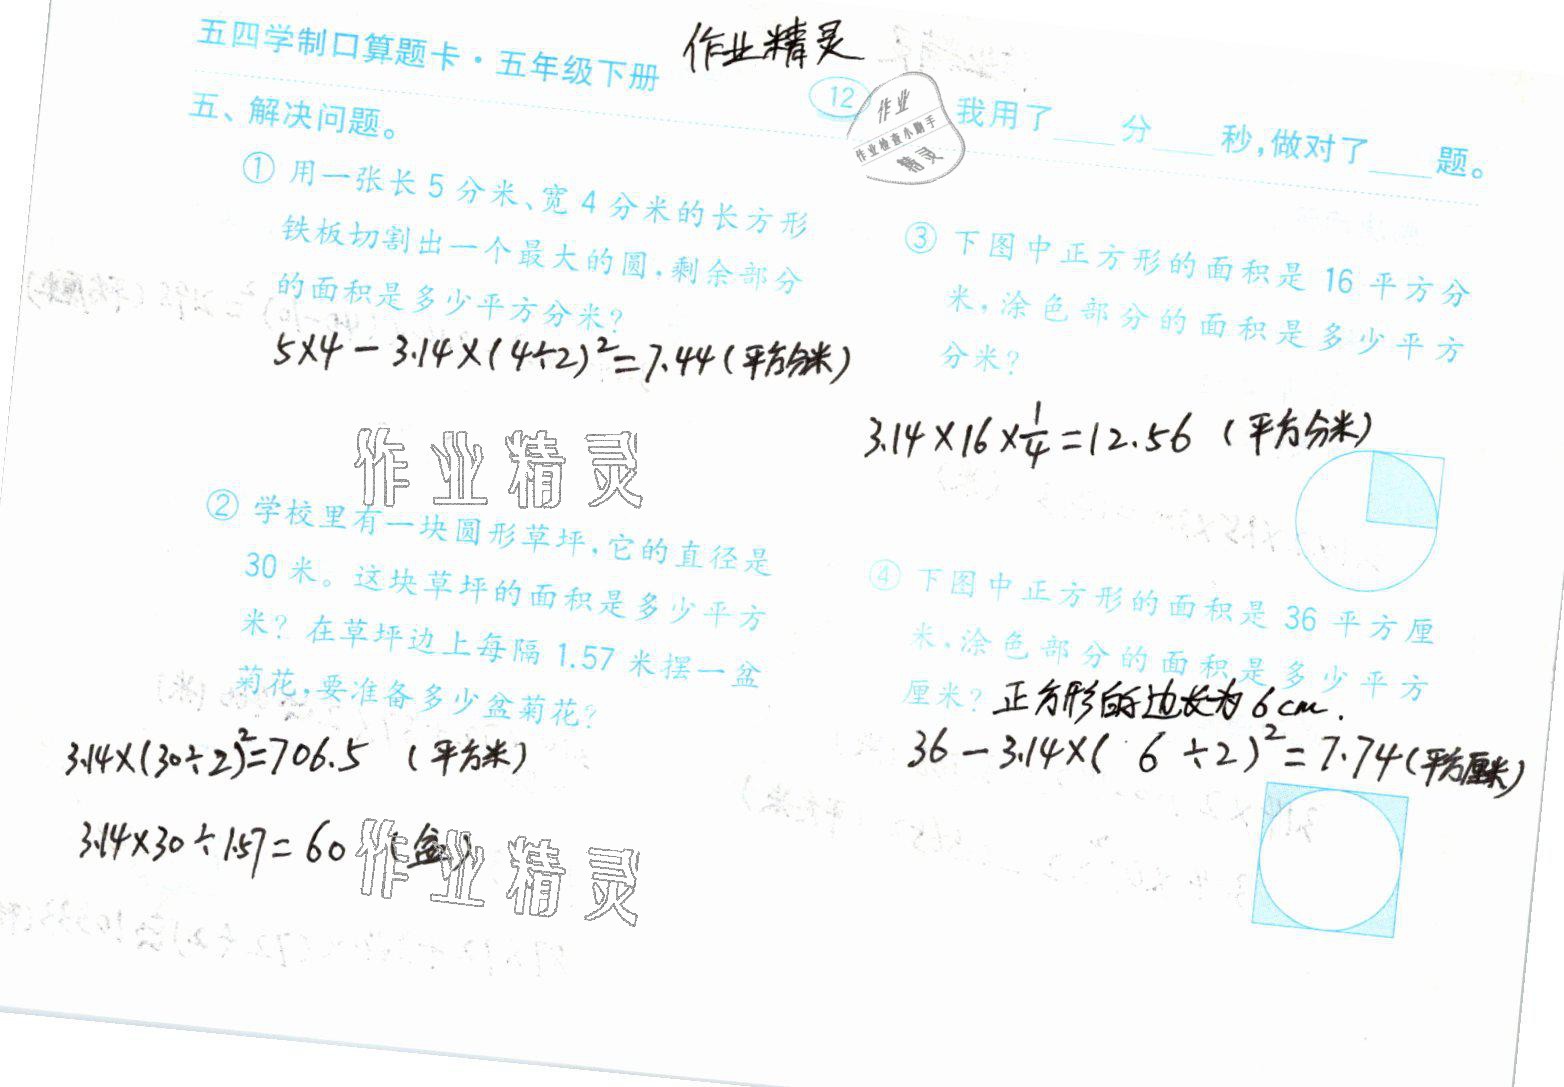 五四学制口算题卡·五年级下册
作业精灵
12
作业
作业检查小助手
精灵
我用了____分____秒,做对了____题。
五、解决问题。
① 用一张长5分米、宽4分米的长方形
铁板切割出一个最大的圆,剩余部分
的面积是多少平方分米?
5×4-3.14×(4÷2)²=7.44(平方分米)
作业精灵
② 学校里有一块圆形草坪,它的直径是
30米。这块草坪的面积是多少平方
米?在草坪边上每隔1.57米摆一盆
菊花,要准备多少盆菊花?
3.14×(30÷2)²=706.5 (平方米)
3.14×30÷1.57=60 (盆)
作业精灵
③ 下图中正方形的面积是16平方分
米,涂色部分的面积是多少平方
分米?
3.14×16×1/4=12.56 (平方分米)
④ 下图中正方形的面积是36平方厘
米,涂色部分的面积是多少平方
厘米?
正方形的边长为6cm.
36-3.14×(6÷2)²=7.74(平方厘米)